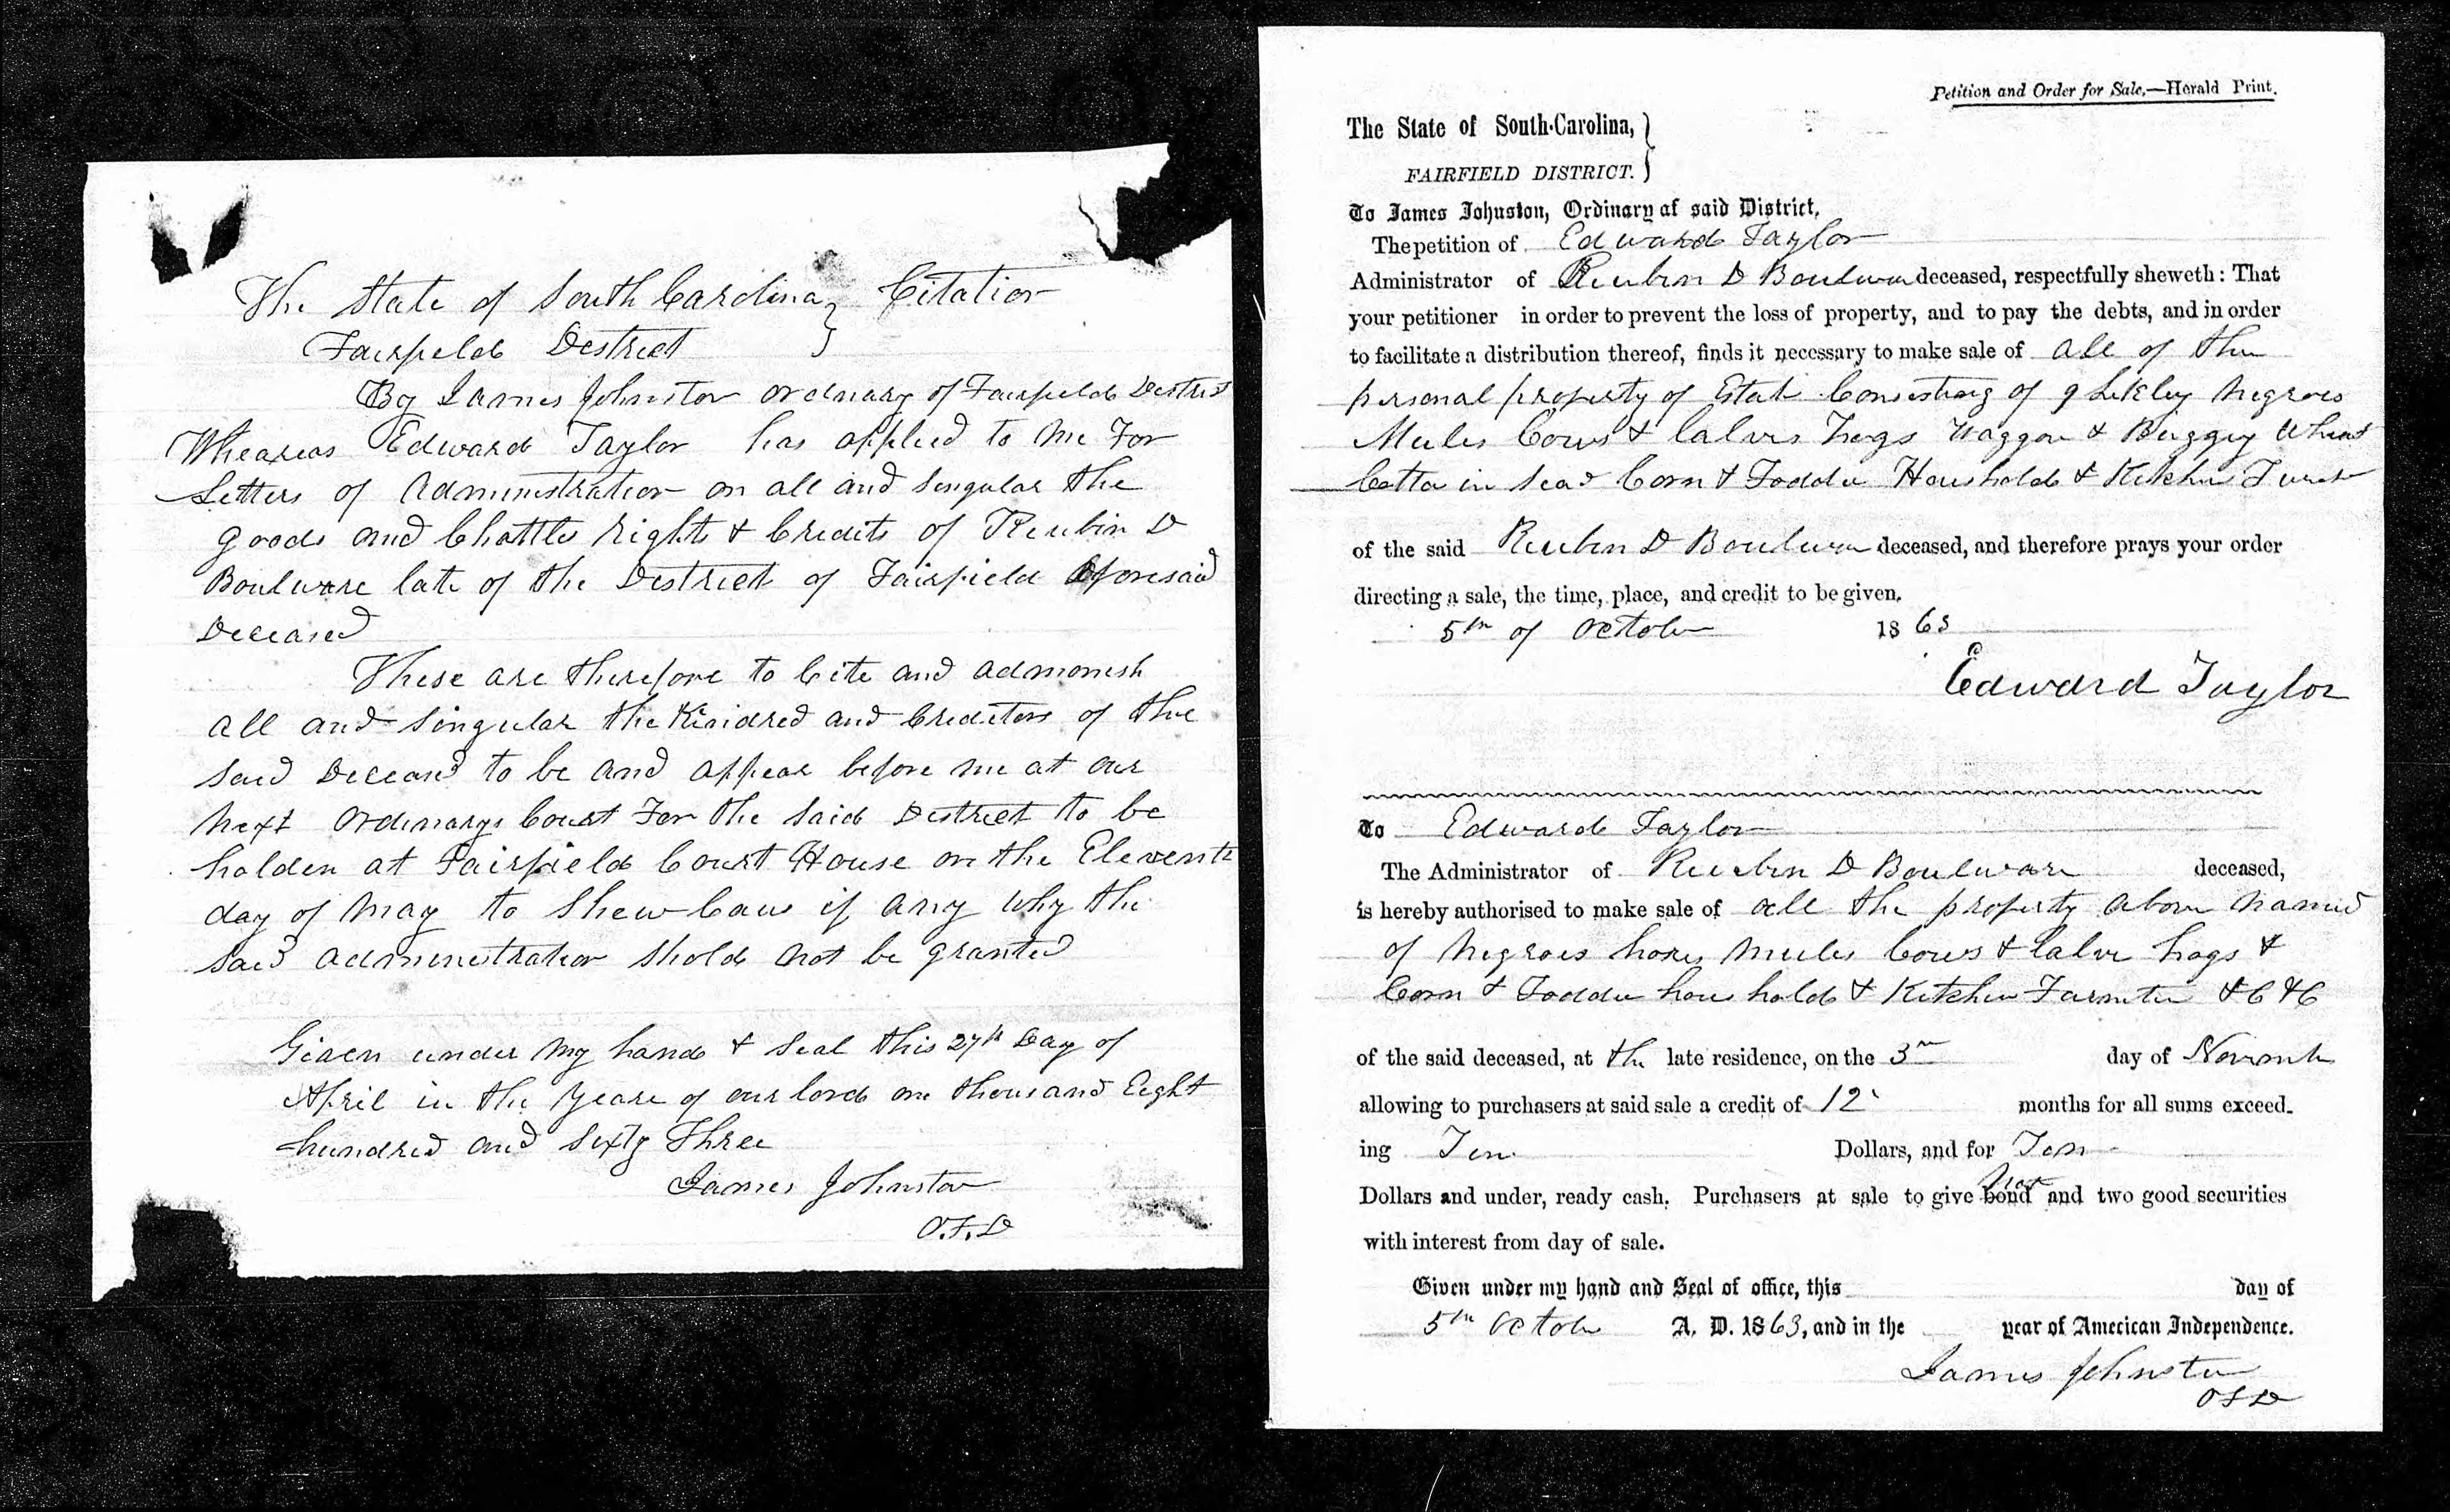 The State of South Carolina } Citation
Fairfield District
By James Johnston ordnary of Fairfield District
Wheareas Edward Taylor has applied to me For
Letters of Administration on all and singular the
goods and Chattles rights & Credits of Reubin D
Boulware late of the District of Fairfield Aforesaid
Deceased
These are therefore to Cite and admonish
all and singular the Kindred and Creditors of the
said Deceased to be and appear before me at our
next ordinarys Court For the said District to be
holden at Fairfield Court House on the Eleventh
day of May to Shew Caus if any why the
said administration shold not be granted
Given under my hand & seal this 27th Day of
April in the Yeare of our lord one thousand Eight
hundred and Sixty Three
James Johnston
O.F.D
Petition and Order for Sale.—Herald Print.
The State of South-Carolina, }
FAIRFIELD DISTRICT. }
To James Johnston, Ordinary of said District.
The petition of Edward Taylor
Administrator of Reubin D Boulware deceased, respectfully sheweth: That
your petitioner in order to prevent the loss of property, and to pay the debts, and in order
to facilitate a distribution thereof, finds it necessary to make sale of all of the
personal property of Estate Consisting of 9 Likley negroes
Mules Cows & Calves hogs Waggon & Buggy Wheat
Cotton in Seed Corn & Fodder Household & Kitchen
of the said Reuben D Boulware deceased, and therefore prays your order
directing a sale, the time, place, and credit to be given.
5th of October 1863
Edward Taylor
To Edward Taylor
The Administrator of Reubin D Boulware deceased,
is hereby authorised to make sale of all the property above named
of negroes horses mules Cows & Calves hogs &
Corn & Fodder house hold & Kitchen Furnitur &C &C
of the said deceased, at the late residence, on the 3rd day of Novemb
allowing to purchasers at said sale a credit of 12 months for all sums exceed-
ing Ten Dollars, and for Ten
Dollars and under, ready cash. Purchasers at sale to give bond and two good securities
with interest from day of sale.
Given under my hand and Seal of office, this day of
5th October A. D. 1863, and in the year of Amecican Independence.
James Johnston
OFD